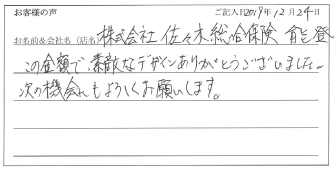 お客様の声
ご記入日2019年12月24日
お名前&会社名(店名) 株式会社 佐々木総合保険 能登
この金額で素敵なデザインありがとうございました。
次の機会もよろしくお願いします。